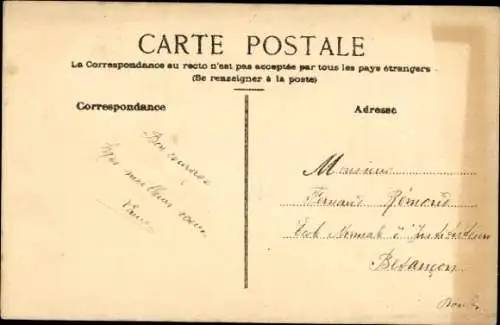 CARTE POSTALE
La Correspondance au recto n'est pas acceptée par tous les pays étrangers
(Se renseigner à la poste)
Correspondance
Adresse
Bon courage
meilleurs vœux
Monsieur
Fernand Rémond
Ecole Normale d'Instituteurs
Besançon
Doubs